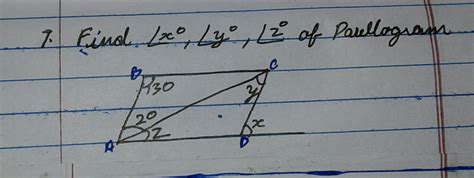 7. Find ∠x°, ∠y°, ∠z° of Parllogram
B
C
130
y
20
z
x
A
D